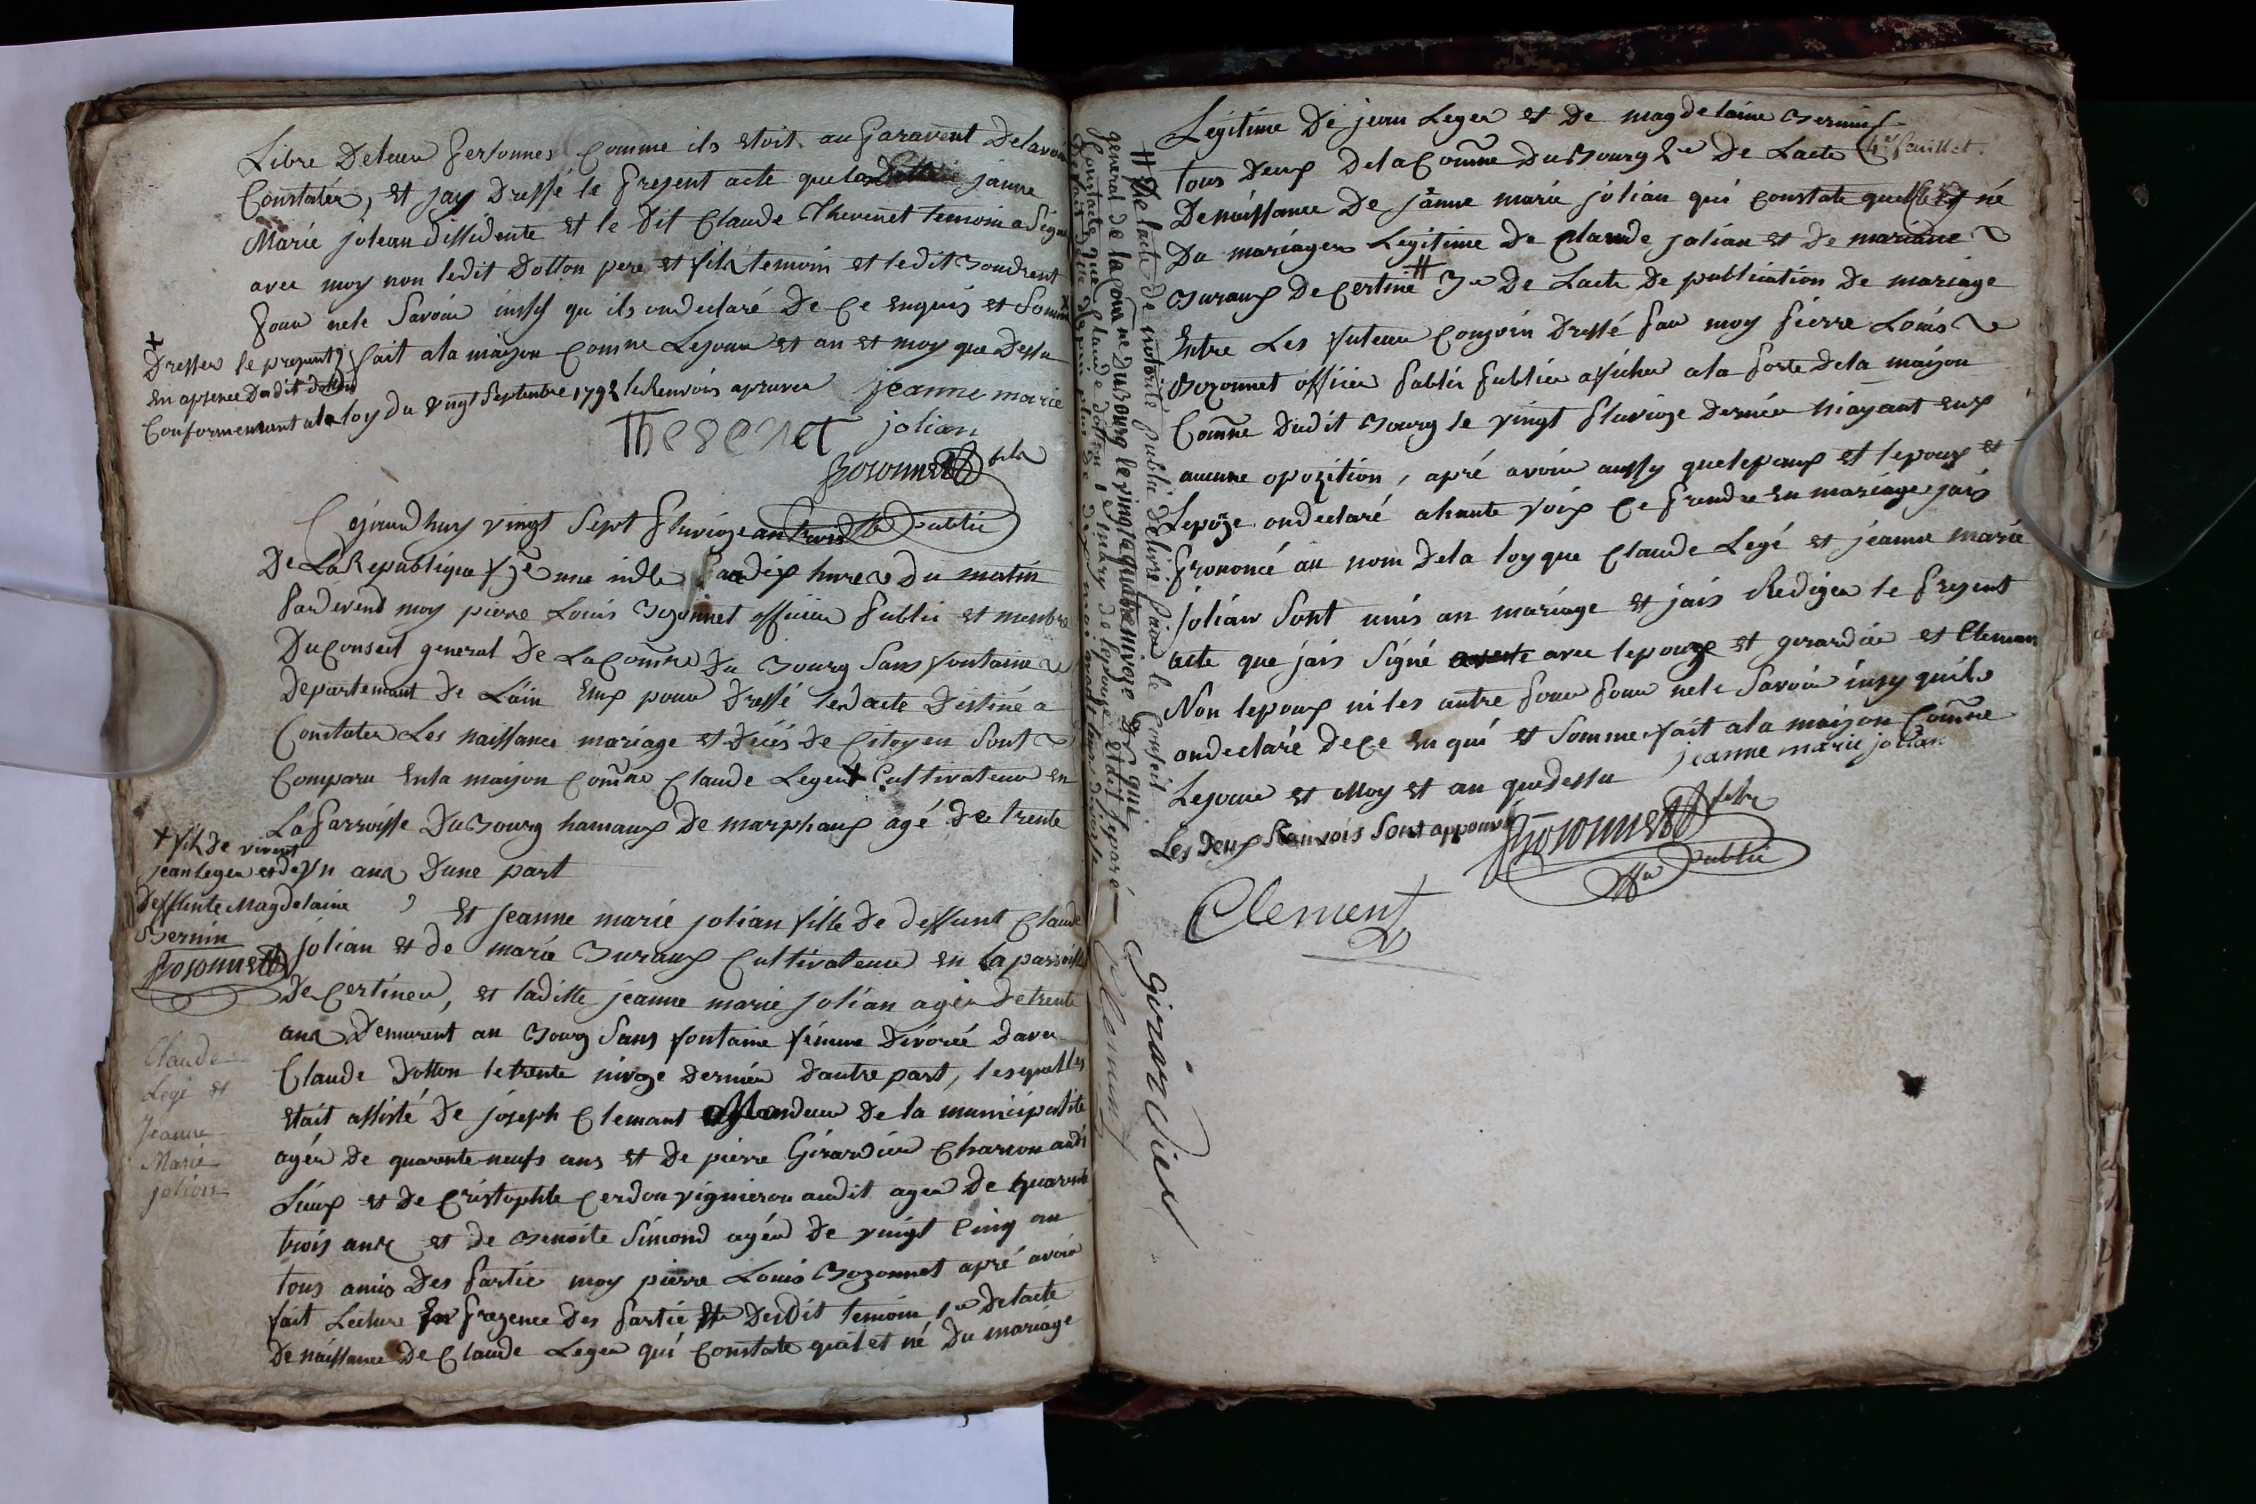 Libre De leur personnes comme ils etoit au paravent De lavoir
Constater, et jay Dressé le present acte que la Ditte janne
Marie jolean dissidente et le Dit Claude Thevenet temoin a signé
avec moy non ledit Dotton pere et fils temoin et ledit Bondrent
pour ne le Savoir insy qu ils on declaré De ce enquis et Sommé
fait a la maison Comne Lejour et an et moy que Dessu
le Renvois apruver
+ Dresser le present
en apsence Dudit dotton
Conformement a la loy du vingt Septembre 1792
jeanne marie
jolian
Thevenet
Bozonnet fils
off public
Cejourdhuy vingt Sept pluvioze an trois
De La Republique f.se une indle a dix hures du matin
pardevend moy pierre Louis Bozonnet officier public et menbre
Du Conseil general De La Comne Du Bourg Sans fontaine
Departemant de Lain Emp pour Dressé les acte Distiné a
Constater Les naissance mariage et Décés de Citoyen Sont
Comparu en la maison Comne Claude Leger + Cultivateur en
La parroisse Du Bourg hamaux De marphaux agé De trente
un ans Dune part
+ fils de vivent
jean Leger et de
deffunte Magdelaine
Bernin
Bozonnet
Et jeanne marie jolian fille De deffunt Claude
jolian et de marie Buraux Cultivateur en la parroisse
De Certineu, et laditte jeanne marie jolian agée de trente
ans Demurent au Bourg Sans fontaine fémme Divorcé daver
Claude Dotton le trente nivoze Dernier dautre part, lesquelles
etait assisté De joseph Clemant Mandeur De la municipalité
agér De quarente neufs ans et De pierre Girardier Charron audi
Lieux et De Cristophle Cerdon vignieron audit ager De quarente
trois ans et de Benoite Simond agér De vingt Cinq an
tous amis Des partie moy pierre Louis Bozonnet apré avoir
fait Lecture En prezence Des partie et Desdit temoin 1re De lacte
De naissance De Claude Leger qui Constate quil et né Du mariage
Claude
Legé et
Jeanne
Marie
jolion
Legitime De jean Leger et De magdelaine Bernin
tous Deux De la Comne Du Bourg 2e De Lacte
4e feuillet.
De naissance De jânne marie jolian qui constate quelle et né
Du mariager Legitime De Claude jolian et De mariane
Buraux De Certine # 3e De Lacte De publication De mariage
Entre Les futeur Conjoin Dressé par moy pierre Louis
Bozonnet officier public publier aficher a la porte De la maison
Comne Dudit Bourg le vingt pluvioze Dernier niayant eux
aucunne opozition, apré avoir aussy que lepoux et lepoux et
Lepoze on declaré a haute voix ce prendre en mariage jais
prononcé au nom De la loy que Claude Legé et jéanne marie
jolian Sont unis an mariage et jais Rediger le prezent
acte que jais Signé avec lepouze et girardier et Cleman
Non lepoux ni les autre pour ne le Savoir insy quils
on declaré De ce en qui et Somme fait a la maizon Comne
Lejour et Moy et an que dessu
jeanne marie jolian
Les deux Ranvois Sont approuvé
Bozonnet fils
off public
Clement
# De lacte de notorité public delivré par le Conseil
general de la Comne Du Bourg le vingt quatre nivoze et qui
Constate que Claude dotton
Girardier
Clemant